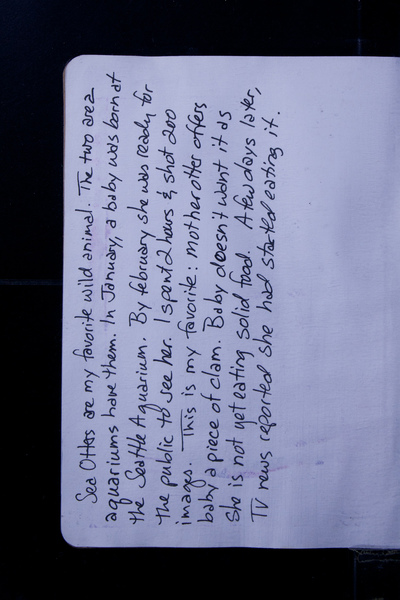 Sea Otters are my favorite wild animal. The two area
aquariums have them. In January, a baby was born at
the Seattle Aquarium. By february she was ready for
the public to see her. I spent 2 hours & shot 200
images. This is my favorite: mother otter offers
baby a piece of clam. Baby doesn't want it as
She is not yet eating solid food. A few days later,
TV news reported she had started eating it.